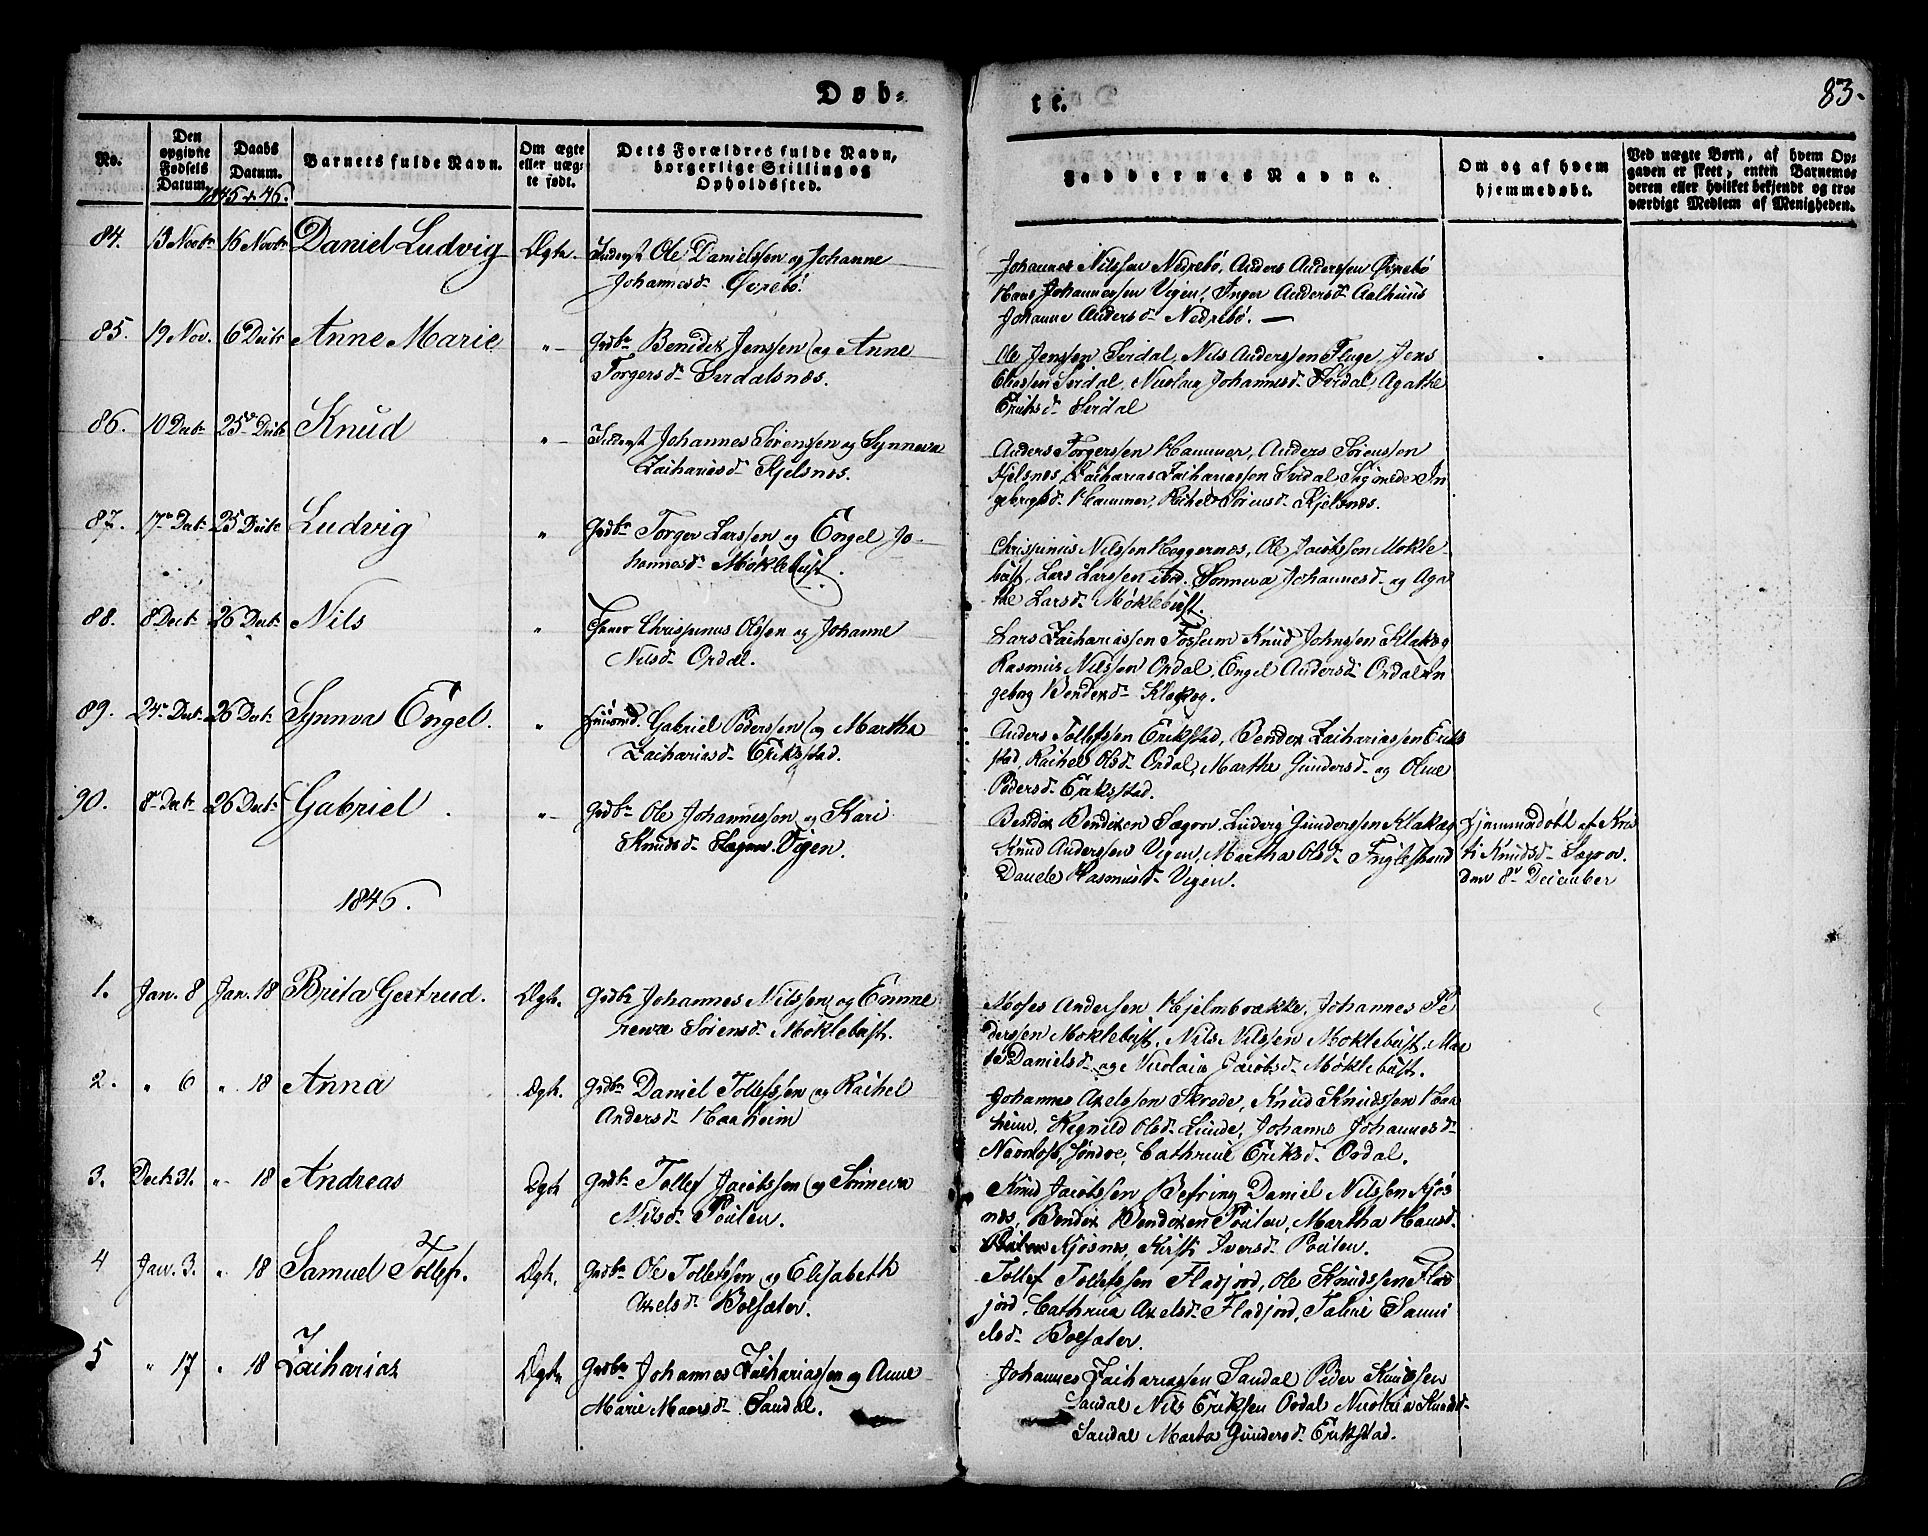 Døb-
te.
83.
No.
Den opgivne Fødsels Datum.
Daabs Datum.
1845 & 46.
Barnets fulde Navn.
Om ægte eller uægte født.
Dets Forældres fulde Navn, borgerlige Stilling og Opholdssted.
Faddernes Navne.
Om og af hvem hjemmedøbt.
Ved uægte Børn, af hvem Opgaven er skeet, enten Barnemoderen eller hvilket bekjendt og troværdigt Medlem af Menigheden.
84. 13 Novbr 16 Novbr Daniel Ludvig Ægte. Ole Danielssen og Johanne
Johannesd. Øvrebö.
Johannes Nilssen Nedrebö, Anders Anderssen Øvrebö
Hans Johannessen Vigen, Inger Andersd. Aalhuus
Johanne Andersd. Nedrebö.
85. 19 Nov. 6 Decbr Anne Marie " Grdbr Bendix Jenssen og Anne
Torgersd. Sirdalsnæs.
Ole Jenssen Sirdal, Nils Anderssen Fluge, Jens
Eliassen Sirdal, Nicolea Johannesd. Sirdal Agathe
Eriksd. Sirdal
86. 10 Decbr 25 Decbr Knud " Johannes Sörenssen og Synneva
Zachariesd. Kjelsnes.
Anders Torgerssen Hammer, Anders Sörenssen
Kjelsnes, Zacharias Zachariassen Sirdal In
gebrigtsd. Hammer, Rachel Sörensd. Kjelsnes.
87. 17 Decbr 25 Decbr Ludvig " Grdbr Torger Larssen og Engel Jo-
hannesd. Möklebust.
Chrispinus Nilssen Heggernes, Ole Jacobssen Mokle-
bust, Lars Larssen ibid. Sönneva Johannesd. og Aga
the Larsd. Möklebust.
88. 8 Decbr 26 Decbr Nils " Chrispinus Olssen og Johanne
Nilsd. Ordal.
Lars Zachariassen Fossum Knud Johnssen Klakeg
Rasmus Nilssen Ordal, Engel Andersd. Ordal In
geborg Bendixd. Klakeg.
89. 24 Decbr 26 Decbr Synneva Engel. " Huusmd. Gabriel Pederssen og Martha
Zachariasd. Eriksstad.
Anders Tollefssen Erikstad, Bendix Zachariassen Erik
stad, Rachel Olsd. Ordal, Marthe Gundersd. og Oline
Pedersd. Eriksstad.
90. 8 Decbr 26 Decbr Gabriel " Grdbr Ole Johannessen og Kari
Knudsd. Vigen.
Bendix Bendixen Sægrov, Ludvig Gunderssen Klakeg
Knud Anderssen Vigen, Martha Olsd.
Daarde Rasmusd. Vigen.
Hjemmedöbt af Kris
ti Knudsd. Sægrov.
den 8 December
1846.
1. Jan. 8 Jan. 18 Brita Gertrud. Ægte. Grdbr Johannes Nilssen og Emme
renze Sörensd. Möklebust.
Moses Andersen Hjelmbrække, Johannes Pe
derssen Moklebust, Nils Nilssen Moklebust, Mar
te Danielsd. og Nicolaia Jacobsd. Möklebust.
2. " 6 " 18 Anna Ægte. Grdbr Daniel Tollefssen og Rachel
Andersd. Haaheim
Johannes Axelssen Skrede, Knud Knudssen Haa
heim, Regnild Olsd. Lunde, Johanne Johannesd.
Cathrine Eriksd. Ordal.
3. Decbr 31. " 18 Andreas Ægte Grdbr Tollef Jacobssen og Sönneva
Nilsd. Pouten.
Knud Jacobssen Befring, Daniel Nilssen Kjös
nes, Bendix Bendixen Pouten, Martha Hansd.
Kjosnes, Kirsti Iversd. Pouten.
4 Jan. 3. " 18 Samuel Tollef. Ægte. Grdbr Ole Tollefssen og Elisabeth
Axelsd. Bolsæter.
Tollef Tollefssen Fladjord, Ole Knudssen Flad
jord, Cathrina Axelsd. Fladjord, Taline Samu
elsd. Bolsæter.
5 " 17 " 18 Zacharias Ægte Grdbr Johannes Zachariassen og Anne
Marie Madsd. Sandal.
Johannes Zachariassen Sandal Peder Knudssen
Sandal Nils Erikssen Ordal Nicolaia Knudsd.
Sandal Marta Gundersd. Erikstad.